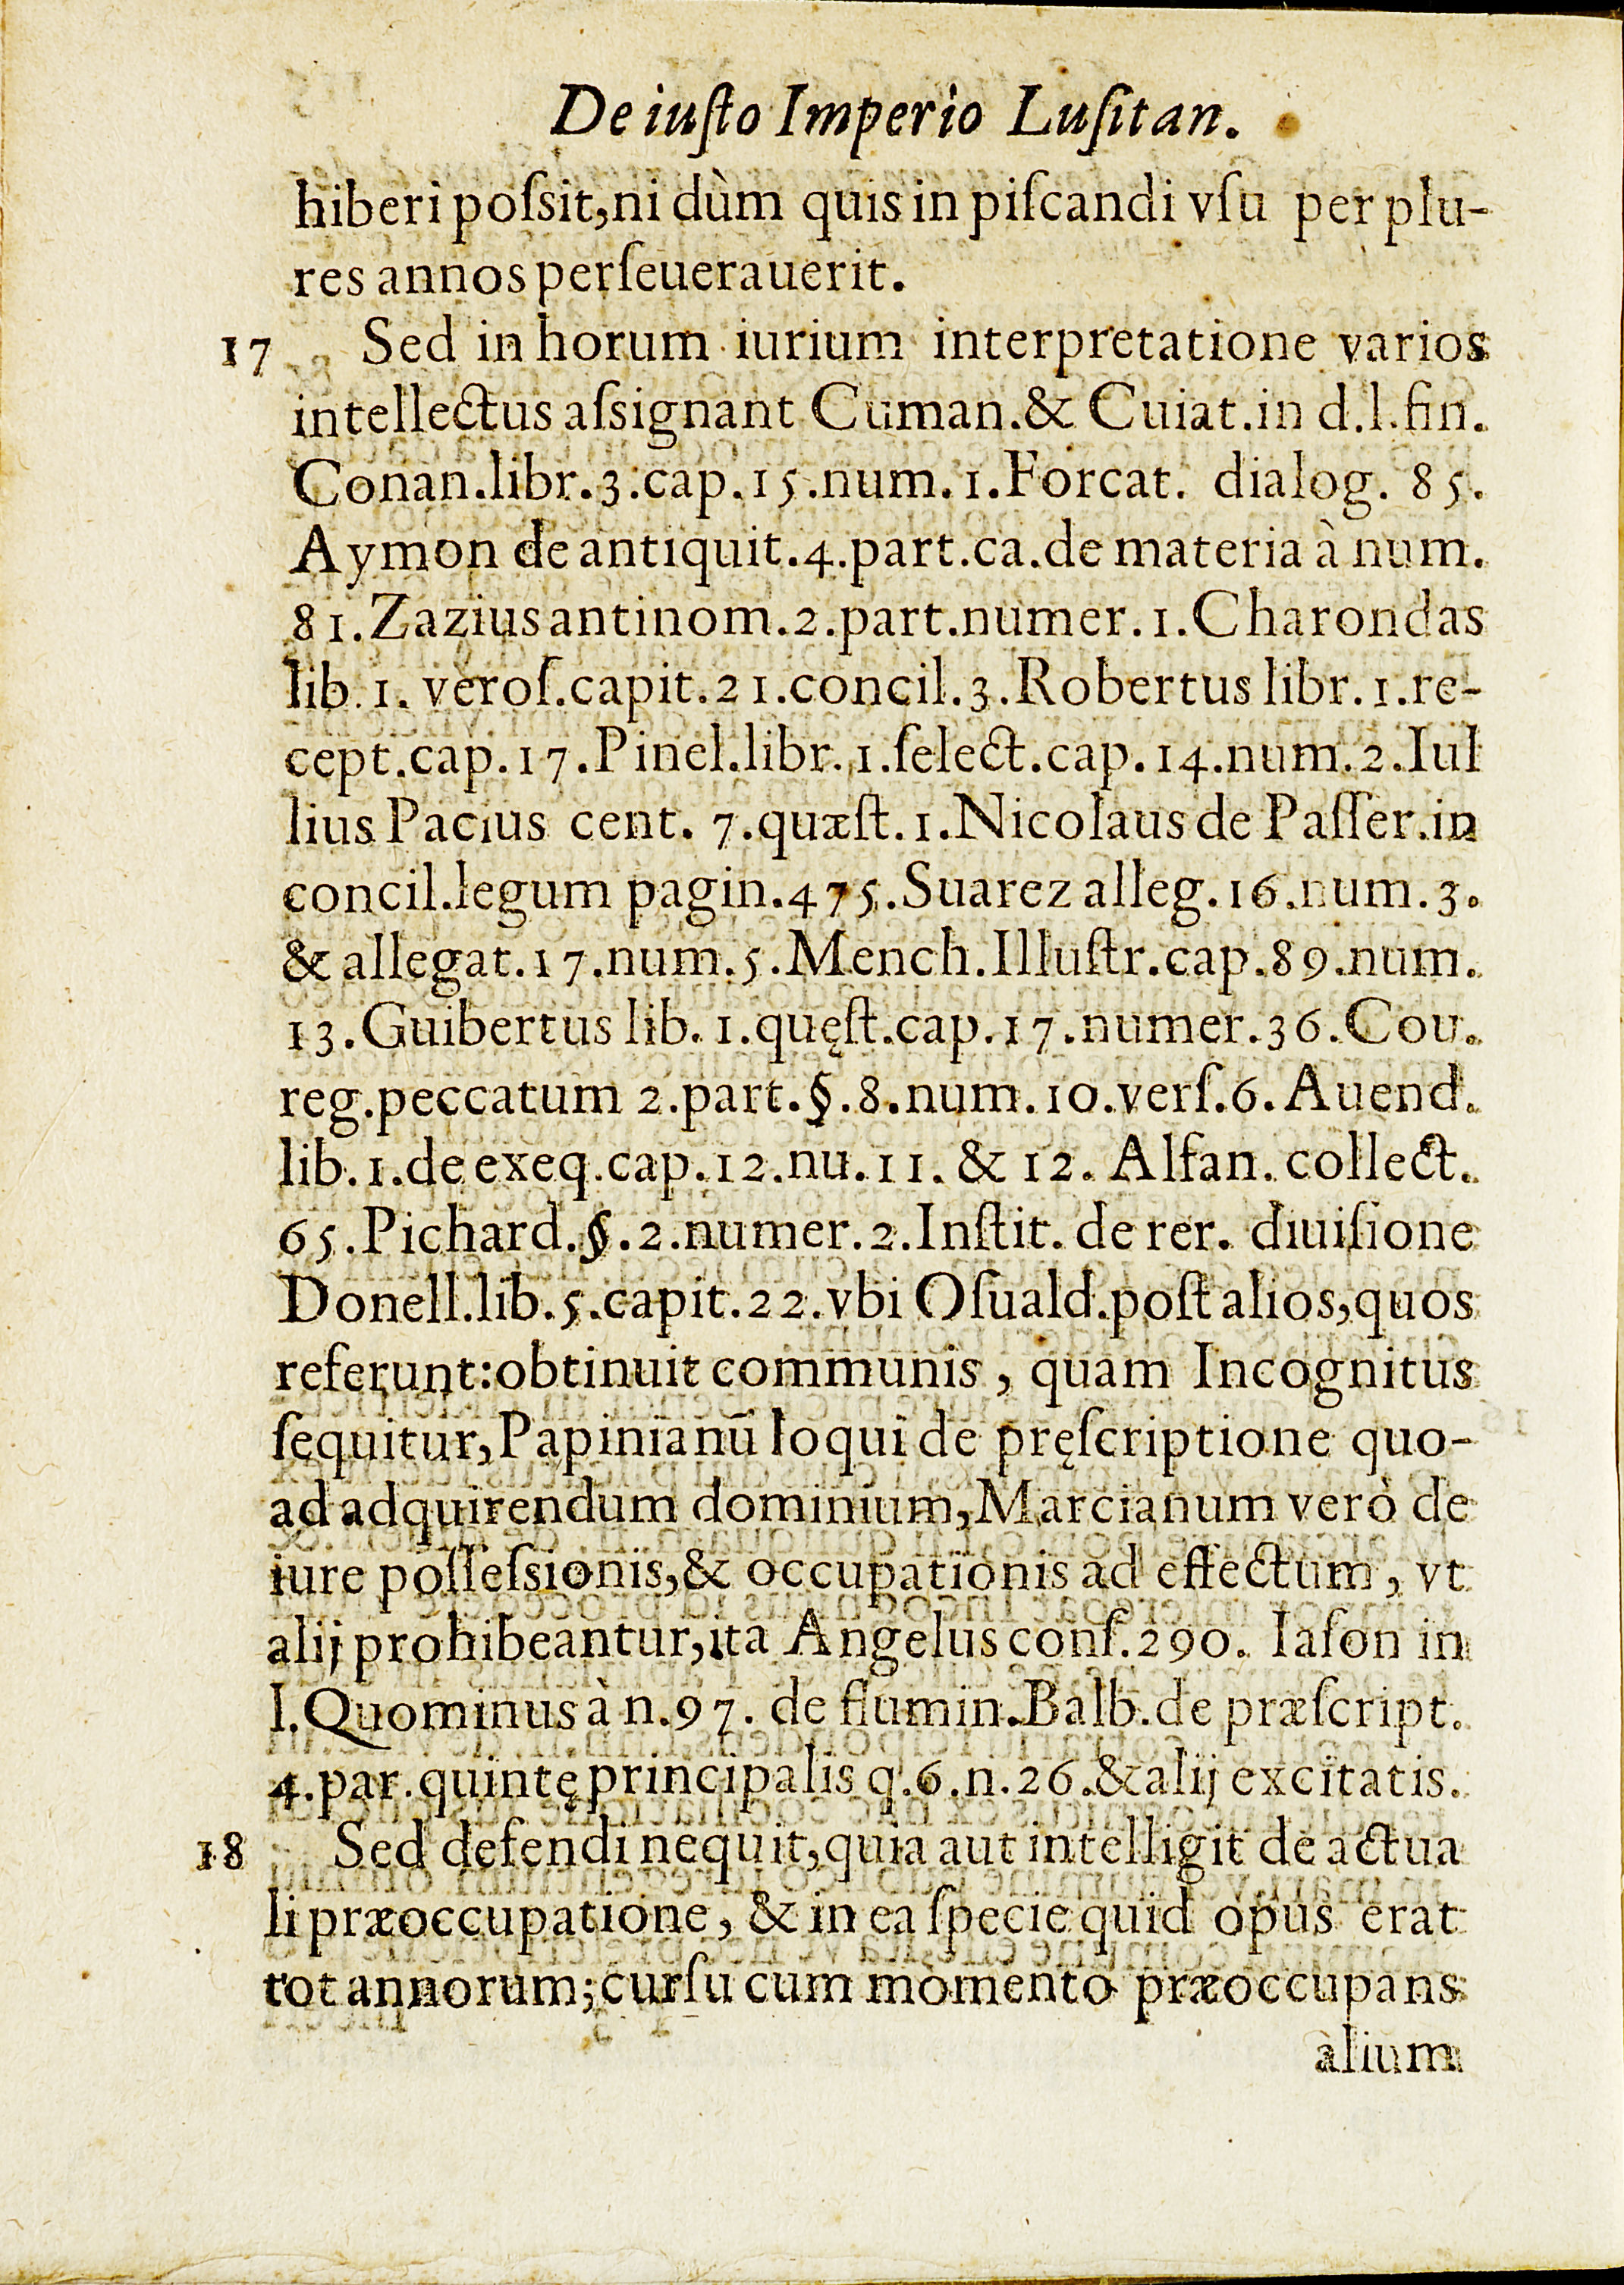 De iuſto Imperio Luſitan.
hiberi poſsit, ni dùm quis in piſcandi vſu per plu-
res annos perſeuerauerit.
17 Sed in horum iurium interpretatione varios
intellectus aſsignant Cuman. & Cuiat. in d. l. fin.
Conan. libr. 3. cap. 15. num. 1. Forcat. dialog. 85.
Aymon de antiquit. 4. part. ca. de materia à num.
81. Zazius antinom. 2. part. numer. 1. Charondas
lib. 1. veroſ. capit. 21. concil. 3. Robertus libr. 1. re-
cept. cap. 17. Pinel. libr. 1. ſelect. cap. 14. num. 2. Iul
lius Pacius cent. 7. quæſt. 1. Nicolaus de Paſſer. in
concil. legum pagin. 475. Suarez alleg. 16. num. 3.
& allegat. 17. num. 5. Mench. Illuſtr. cap. 89. num.
13. Guibertus lib. 1. quęſt. cap. 17. numer. 36. Cou.
reg. peccatum 2. part. §. 8. num. 10. verſ. 6. Auend.
lib. 1. de exeq. cap. 12. nu. 11. & 12. Alfan. collect.
65. Pichard. §. 2. numer. 2. Inſtit. de rer. diuiſione
Donell. lib. 5. capit. 22. vbi Oſuald. poſt alios, quos
referunt: obtinuit communis, quam Incognitus
ſequitur, Papinianū loqui de pręſcriptione quo-
ad adquirendum dominium, Marcianum verò de
iure poſſeſsionis, & occupationis ad effectum, vt
alij prohibeantur, ita Angelus conſ. 290. Iaſon in
l. Quominus à n. 97. de flumin. Balb. de præſcript.
4. par. quintę principalis q. 6. n. 26. & alij excitatis.
18 Sed defendi nequit, quia aut intelligit de actua
li præoccupatione, & in ea ſpecie quid opus erat
tot annorum; curſu cum momento præoccupans
alium